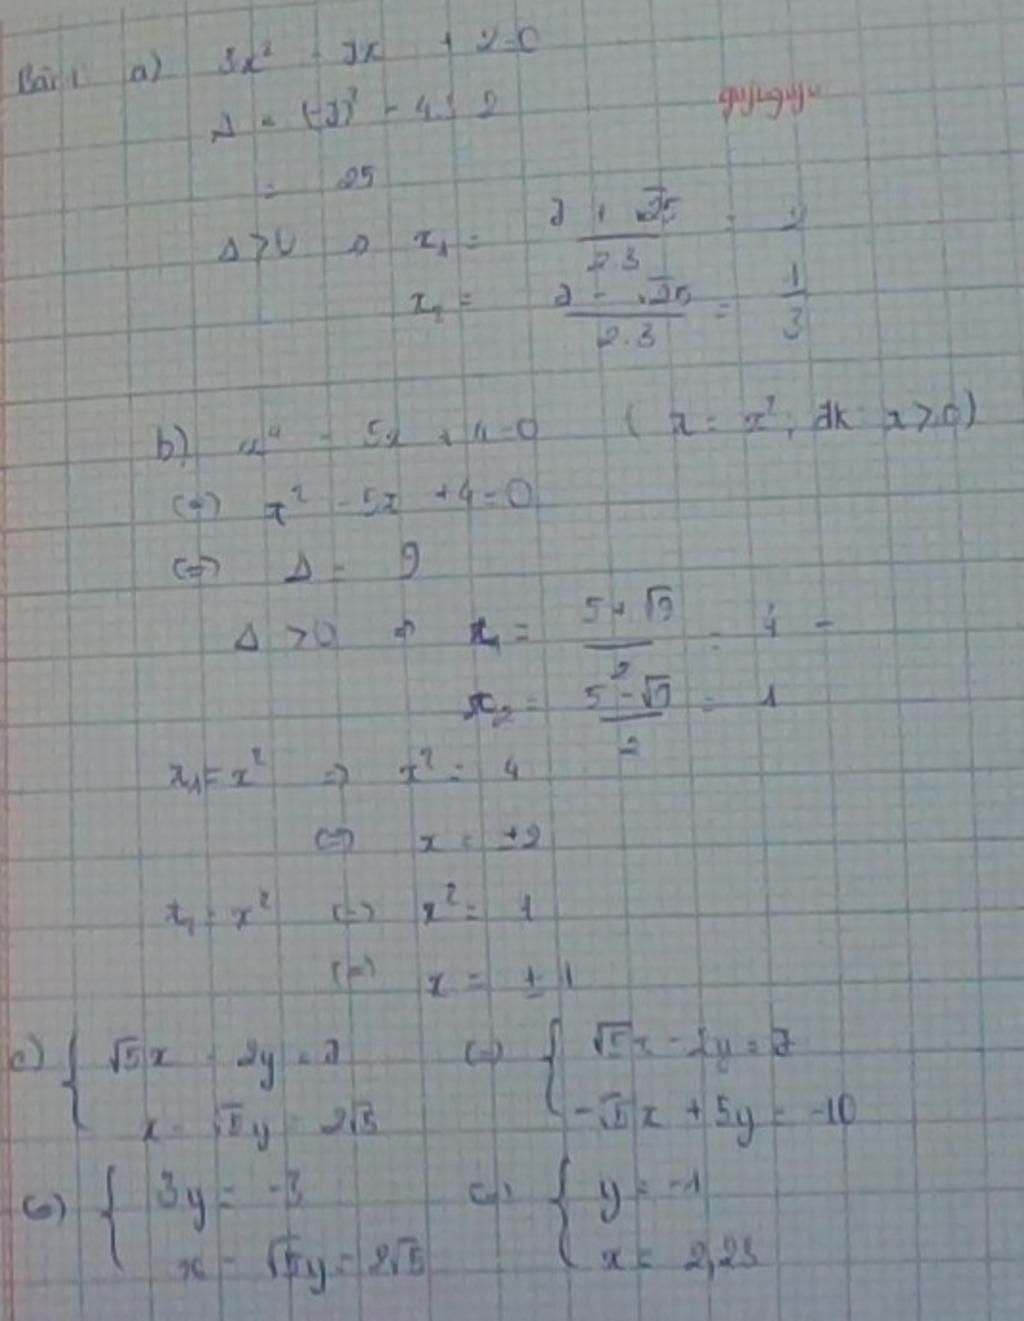 Bài 1 a) 3x² - 7x + 2 = 0
Δ = (-7)² - 4.3.2
= 25
Δ > 0 => x₁ = (7 + √25)/(2.3) = 2
x₂ = (7 - √25)/(2.3) = 1/3
b) x⁴ - 5x + 4 = 0 ( x = x², đk x ≥ 0)
(=) x² - 5x + 4 = 0
(=) Δ = 9
Δ > 0 => x₁ = (5 + √9)/2 = 4
x₂ = (5 - √9)/2 = 1
x₁ = x² => x² = 4
(=) x = ±2
x₁ = x² (=) x² = 1
(=) x = ±1
c) { √5x - 2y = 7 (=) { √5x - 2y = 7
x - √5y = 2√5 -√5x + 5y = -10
(=) { 3y = -3 (=) { y = -1
x - √5y = 2√5 x = 2,23